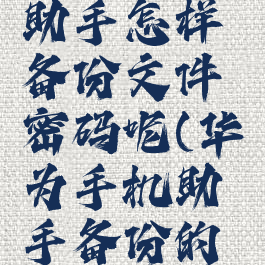 助手怎样
备份文件
密码呢(华
为手机助
手备份的